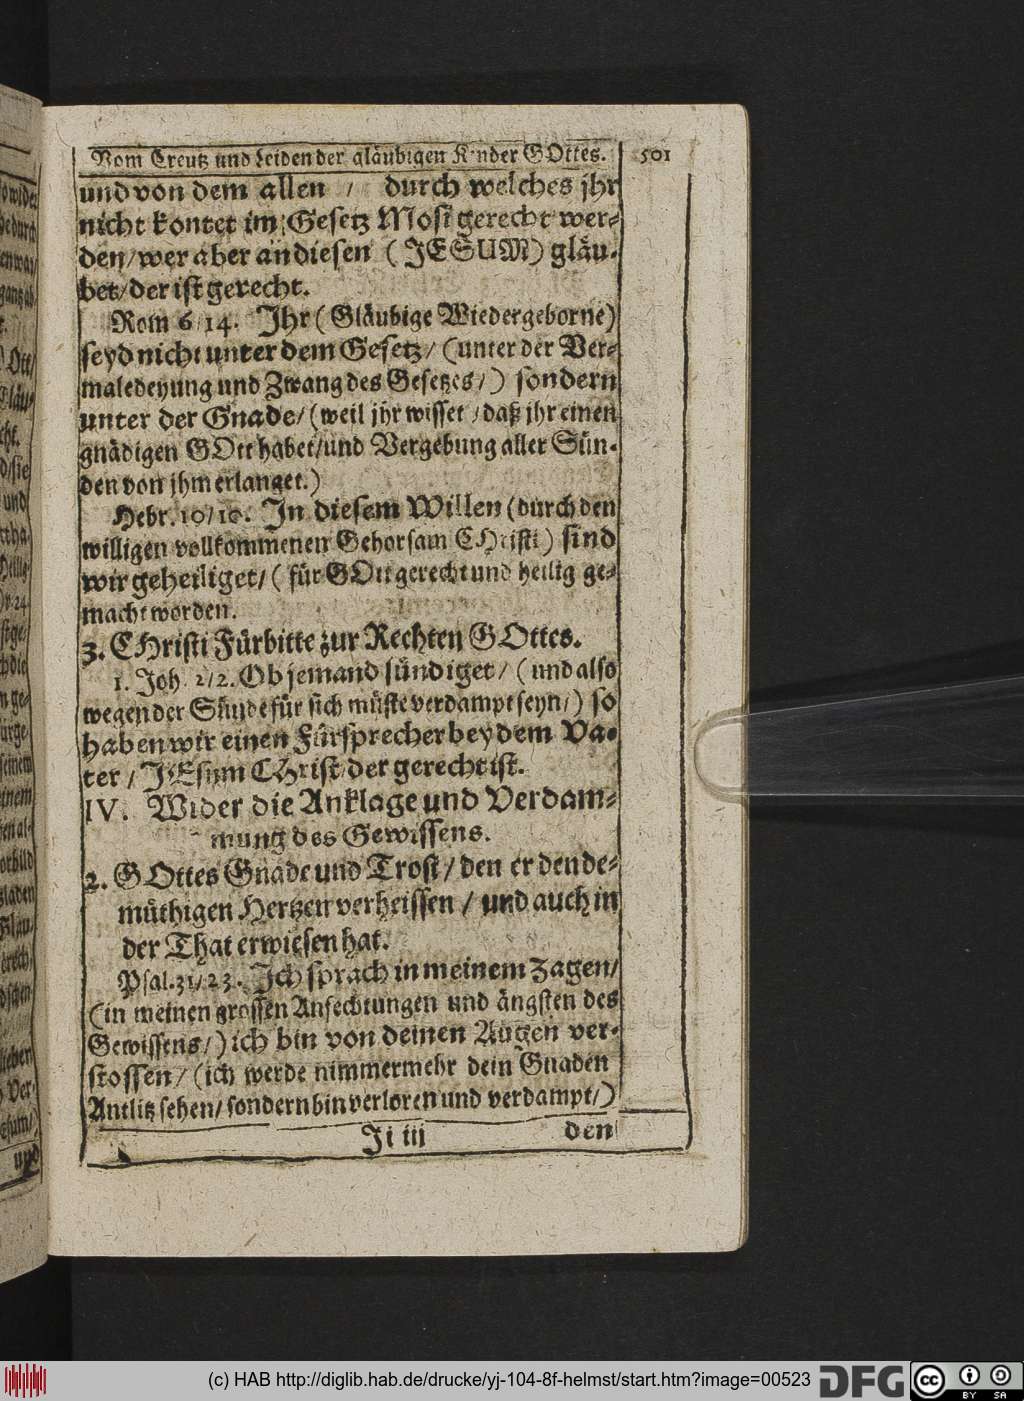 Vom Creutz und Leiden der gläubigen Kinder GOttes. 501
und von dem allen / durch welches jhr
nicht kontet im Gesetz Mosi gerecht wer-
den/wer aber an diesen (JESUM) gläu-
bet/der ist gerecht.
Rom 6/14. Jhr (Gläubige Wiedergeborne)
seyd nicht unter dem Gesetz/ (unter der Ver-
maledeyung und Zwang des Gesetzes/) sondern
unter der Gnade/(weil jhr wisset / daß jhr einen
gnädigen GOtt habet/und Vergebung aller Sün-
den von jhm erlanget.)
Hebr. 10/10. Jn diesem Willen (durch den
willigen vollkommenen Gehorsam CHristi) sind
wir geheiliget/ ( für GOtt gerecht und heilig ge-
macht worden.
3. CHristi Fürbitte zur Rechten GOttes.
1. Joh. 2/2. Ob jemand sündiget/ ( und also
wegen der Sünde für sich müste verdampt seyn/) so
haben wir einen Fürsprecher bey dem Va-
ter / JEsum CHrist der gerecht ist.
IV. Wider die Anklage und Verdam-
mung des Gewissens.
2. GOttes Gnade und Trost/ den er den de-
müthigen Hertzen verheissen / und auch in
der That erwiesen hat.
Psal. 31/23. Jch sprach in meinem Zagen/
(in meinen grossen Anfechtungen und ängsten des
Gewissens/) ich bin von deinen Augen ver-
stossen/ (ich werde nimmermehr dein Gnaden
Antlitz sehen/ sondern bin verloren und verdampt/)
Ji iii den
(c) HAB http://diglib.hab.de/drucke/yj-104-8f-helmst/start.htm?image=00523 DFG cc BY SA